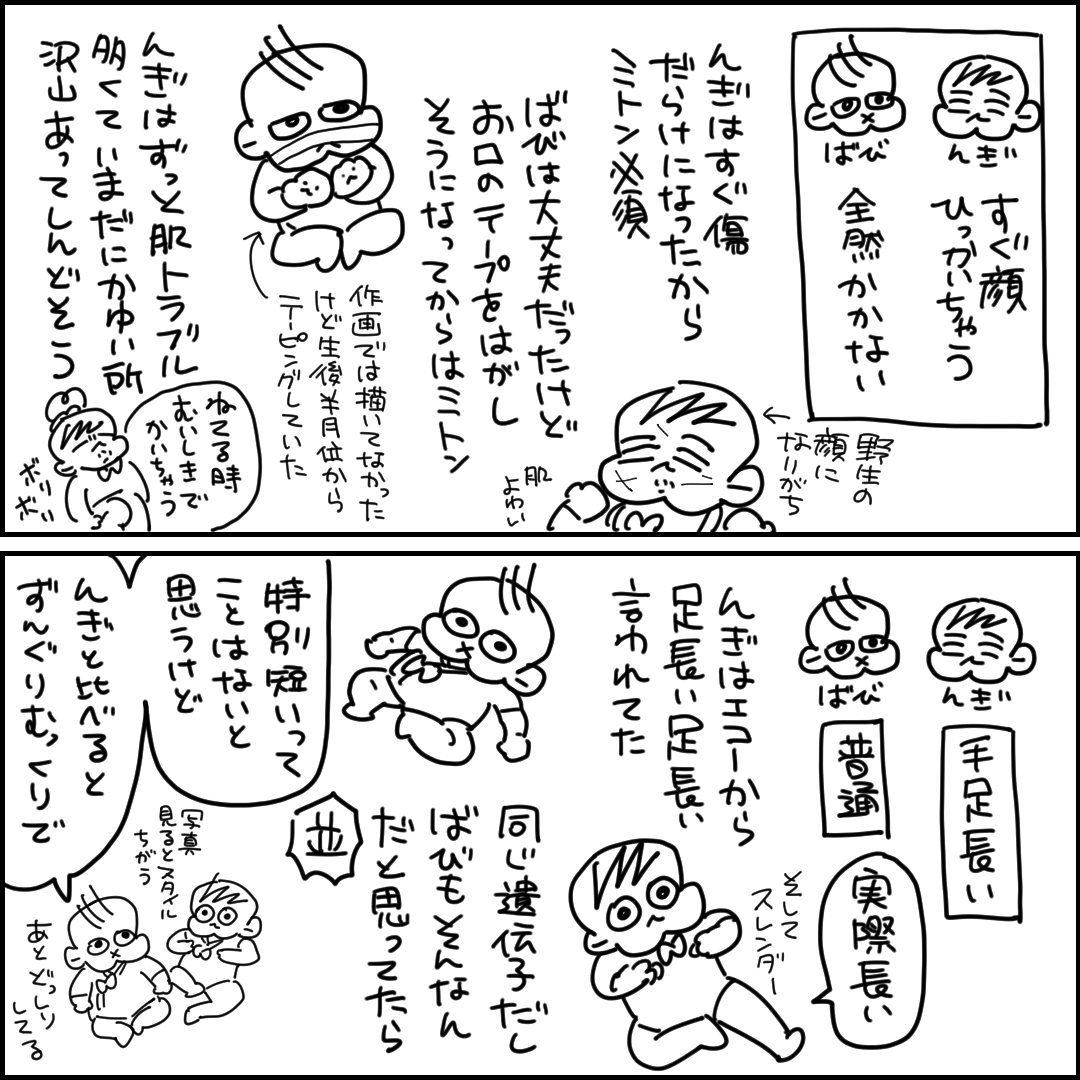 んぎ
すぐ顔
ひっかいちゃう
ばび
全然かかない
んぎはすぐ傷
だらけになったから
ミトン必須
野生の
顔に
なりがち
肌
よわい
ばびは大丈夫だったけど
お口のテープをはがし
そうになってからはミトン
作画では描いてなかった
けど生後半月位から
テーピングしていた
んぎはずっと肌トラブル
多くていまだにかゆい所
沢山あってしんどそう
ねてる時
むいしきで
かいちゃう
ボリ
ボリ
んぎ
手足長い
ばび
普通
実際長い
んぎはエコーから
足長い足長い
言われてた
そして
スレンダー
同じ遺伝子だし
ばびもそんなん
だと思ってたら
並
特別短いって
ことはないと
思うけど
んぎと比べると
ずんぐりむっくりで
写真
見るとスタイル
ちがう
あとどっしり
してる